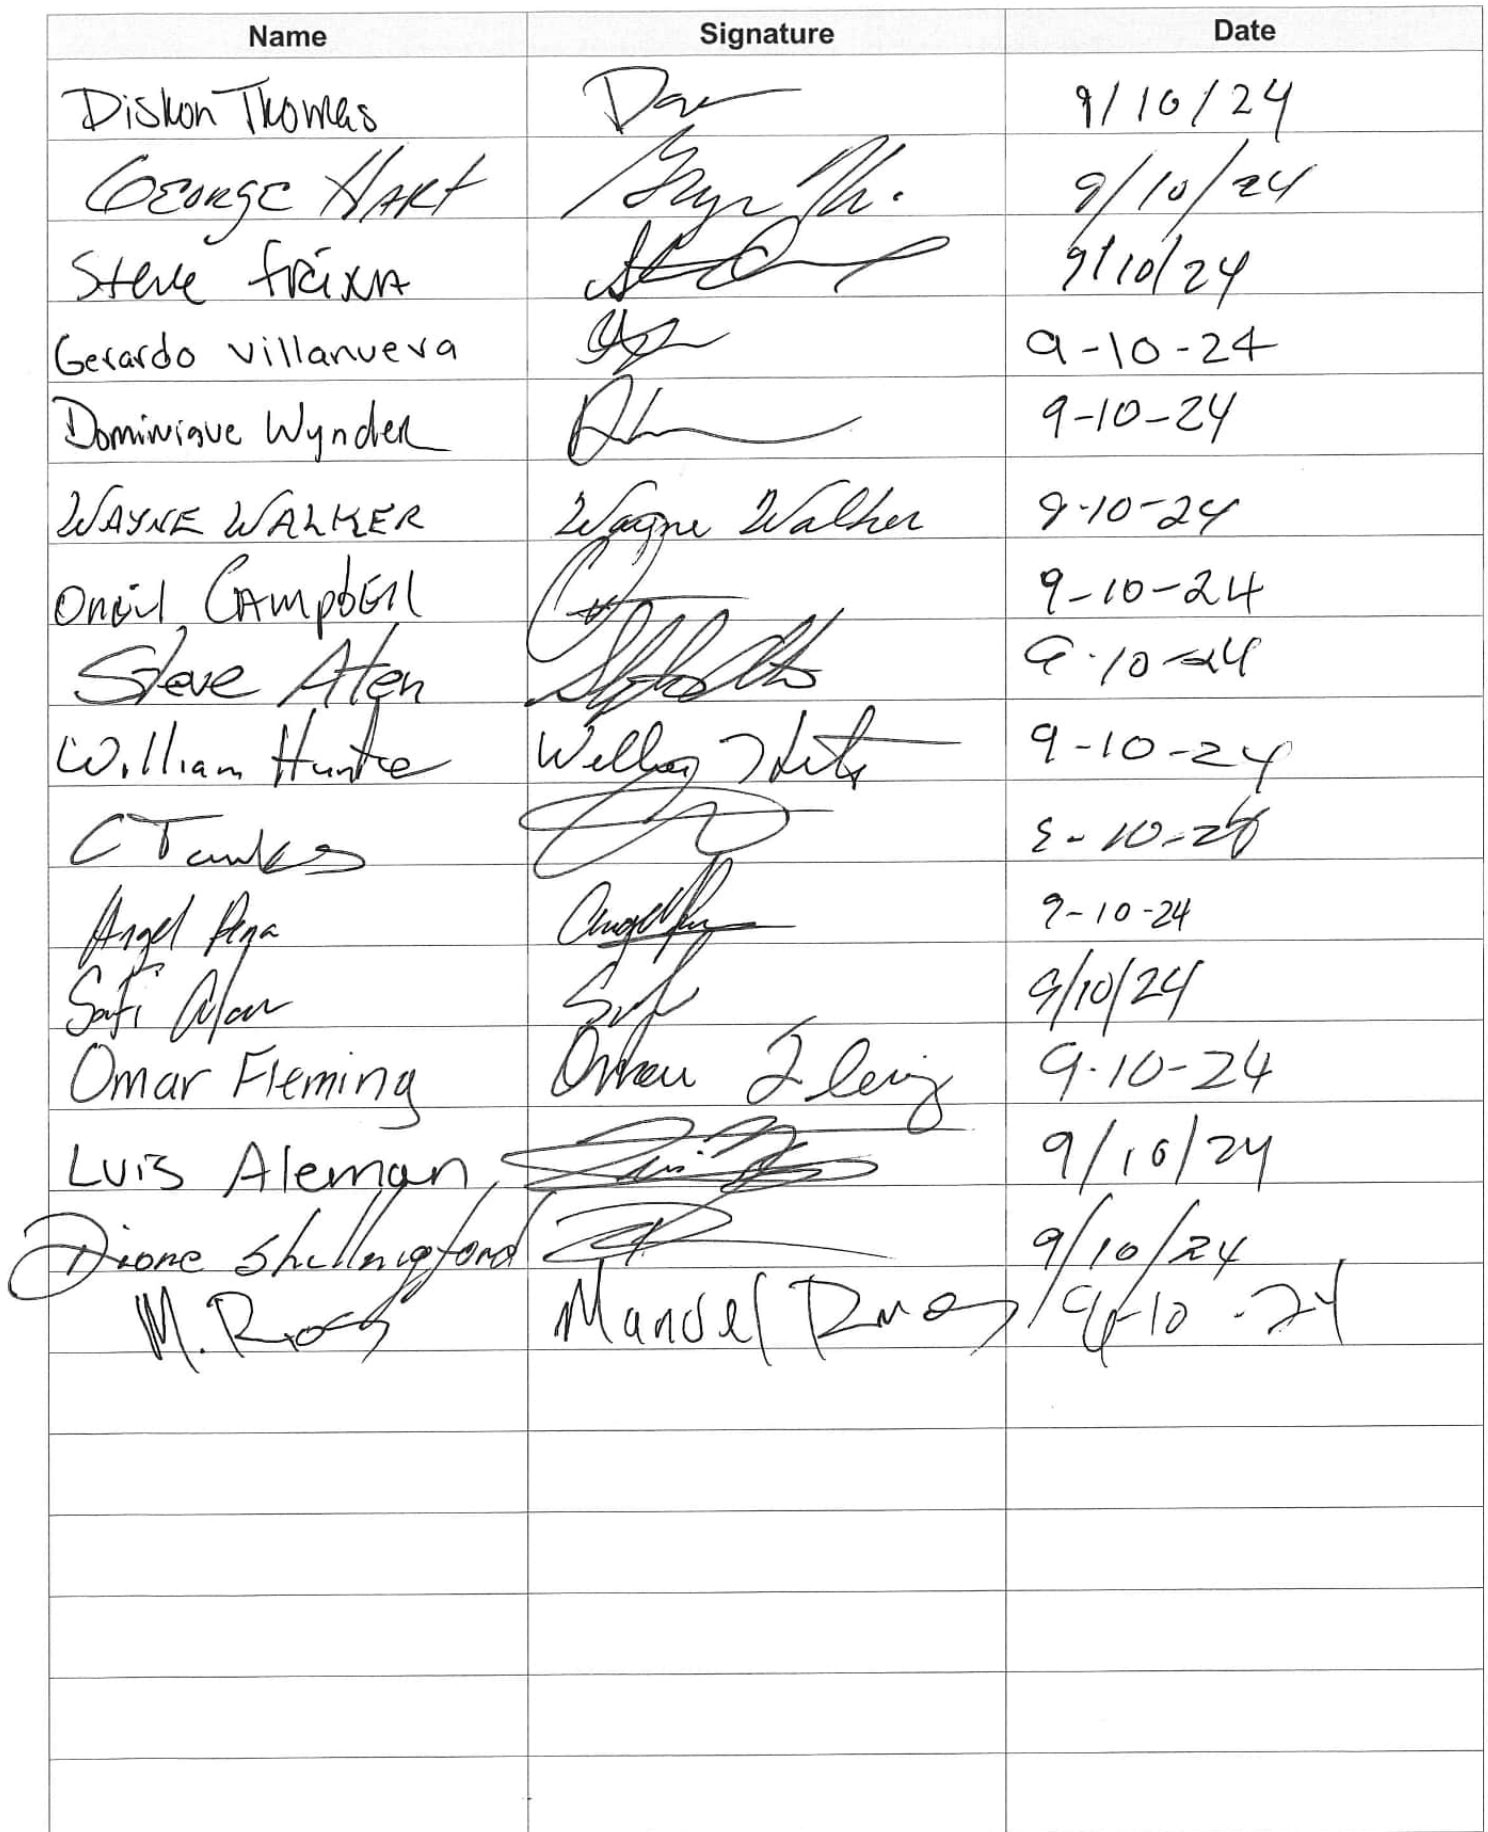 Name Signature Date
Diskon Thomas 9/10/24
George Hart 9/10/24
Steve Freixa 9/10/24
Gerardo Villanueva 9-10-24
Dominique Wynder 9-10-24
Wayne Walker Wayne Walker 9-10-24
Oneil Campbell 9-10-24
Steve Aten 9-10-24
William Hunte 9-10-24
C Tanks 9-10-24
Angel Pena 9-10-24
Safi 9/10/24
Omar Fleming Omar Fleming 9-10-24
Luis Aleman 9/10/24
Dione Shillingford 9/10/24
M. Manuel 9-10-24